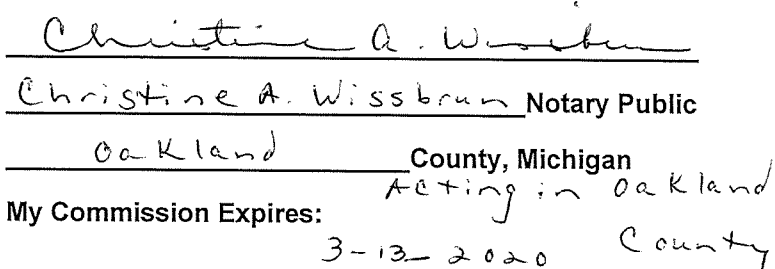 Christine A. Wissbrun
Christine A. Wissbrun Notary Public
Oakland County, Michigan
Acting in Oakland
My Commission Expires:
3-13-2020 County